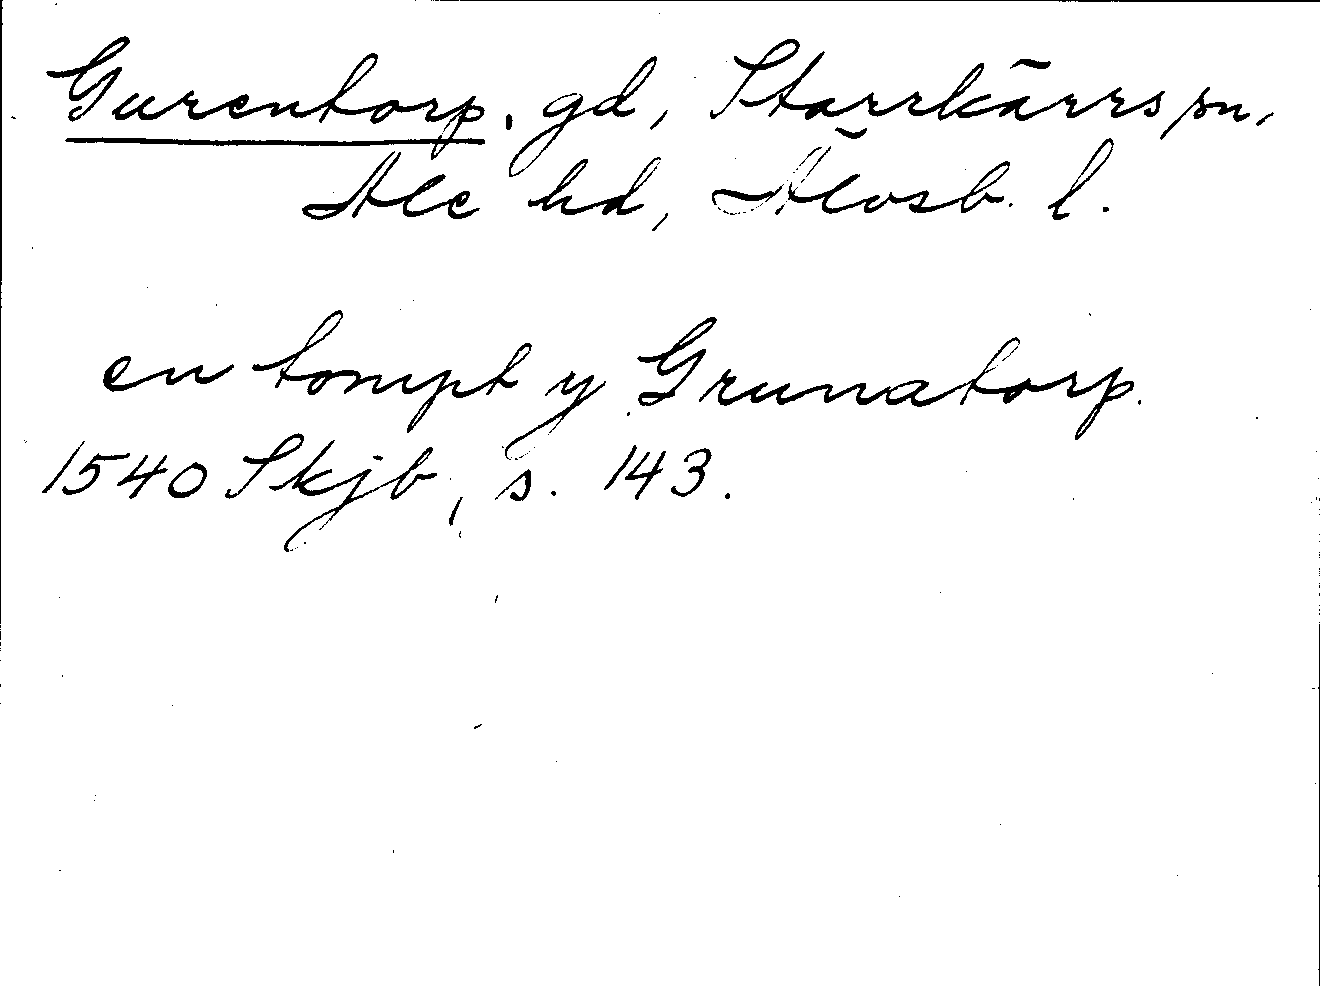 Gurentorp. gd, Starrkärrs sn,
Ale hd, Älvsb. l.
en tompt y Grunatorp.
1540 Skjb, s. 143.